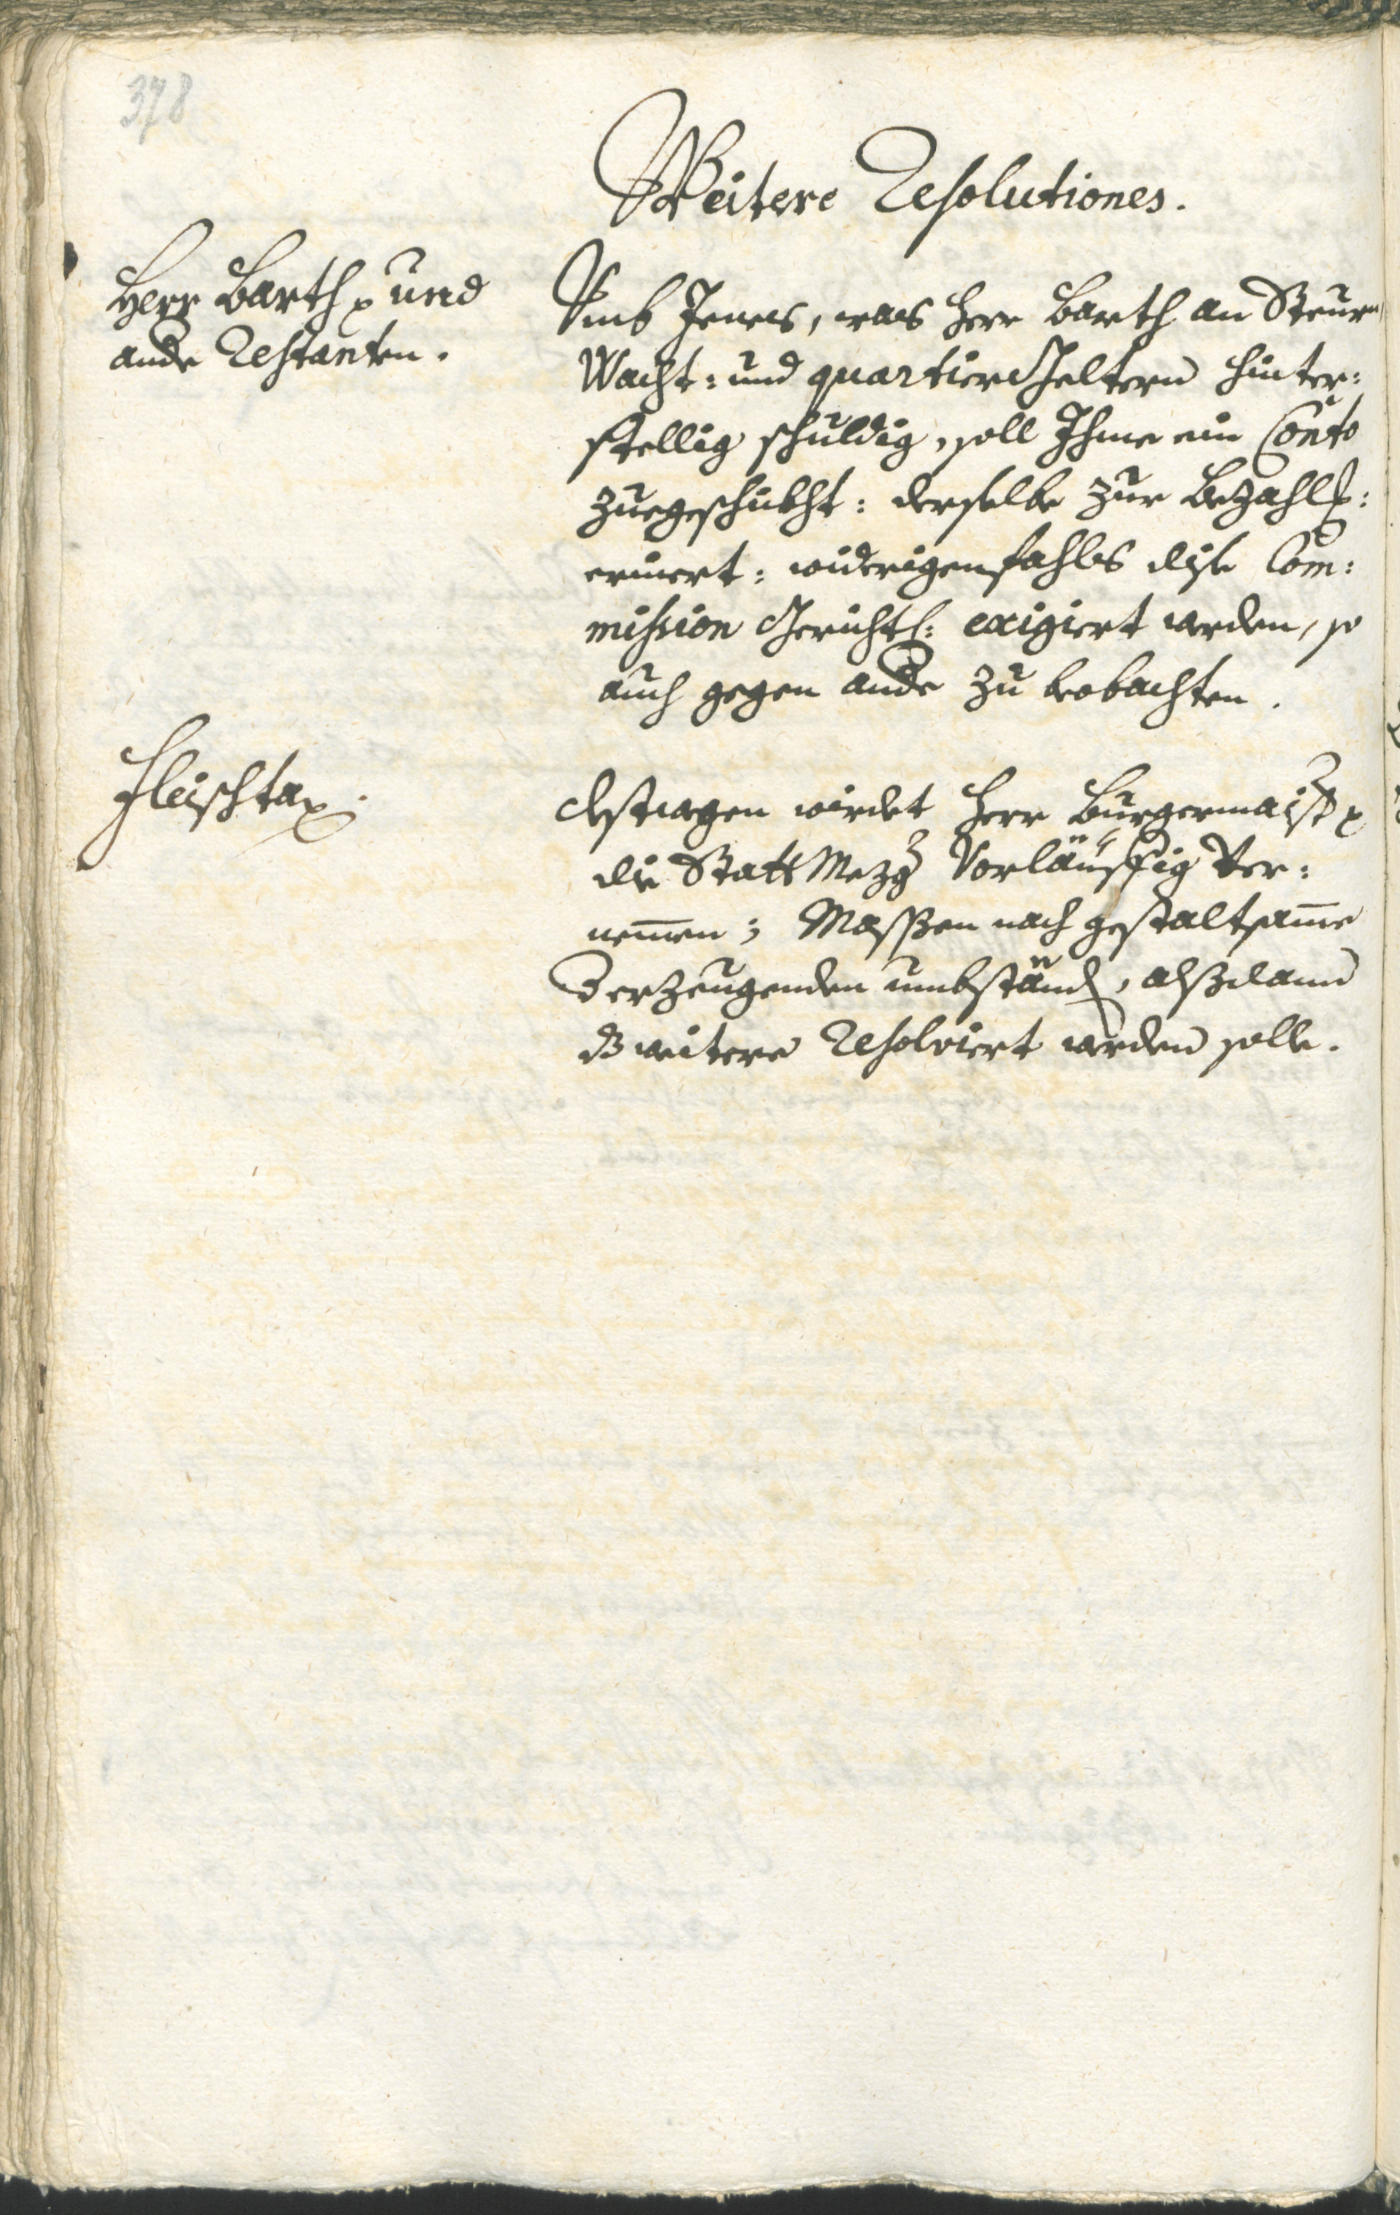 378
Weitere Resolutiones.
Herr Barth und
andre Restanten.
Vmb Jenes, was Herr Barth an Steur,
Wacht: und quartier Geltern hinter:
stellig schuldig, soll Ihme ein Conto
zuegeschickht: derselbe zur Bezahlg:
erinert: widerigenfahls dise Com:
mission Gerichtl: exigiert werden, so
auch gegen andre zu beobachten.
Fleischtax.
destwegen wirdet Herr Burgermaister
die Statt Mezger Vorläuffig Ver:
nemen; Massen nach gestaltsame
Vorzeugenden umbständ, alßdann
dz weitere Resolviert werden solle.